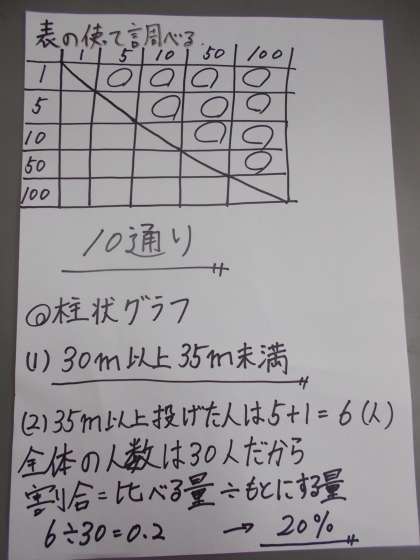 表の使って調べる
1 5 10 50 100
1 ○ ○ ○ ○
5 ○ ○ ○
10 ○ ○
50 ○
100
10通り
◎柱状グラフ
(1) 30m以上35m未満
(2) 35m以上投げた人は5+1=6(人)
全体の人数は30人だから
割合=比べる量÷もとにする量
6÷30=0.2 → 20%